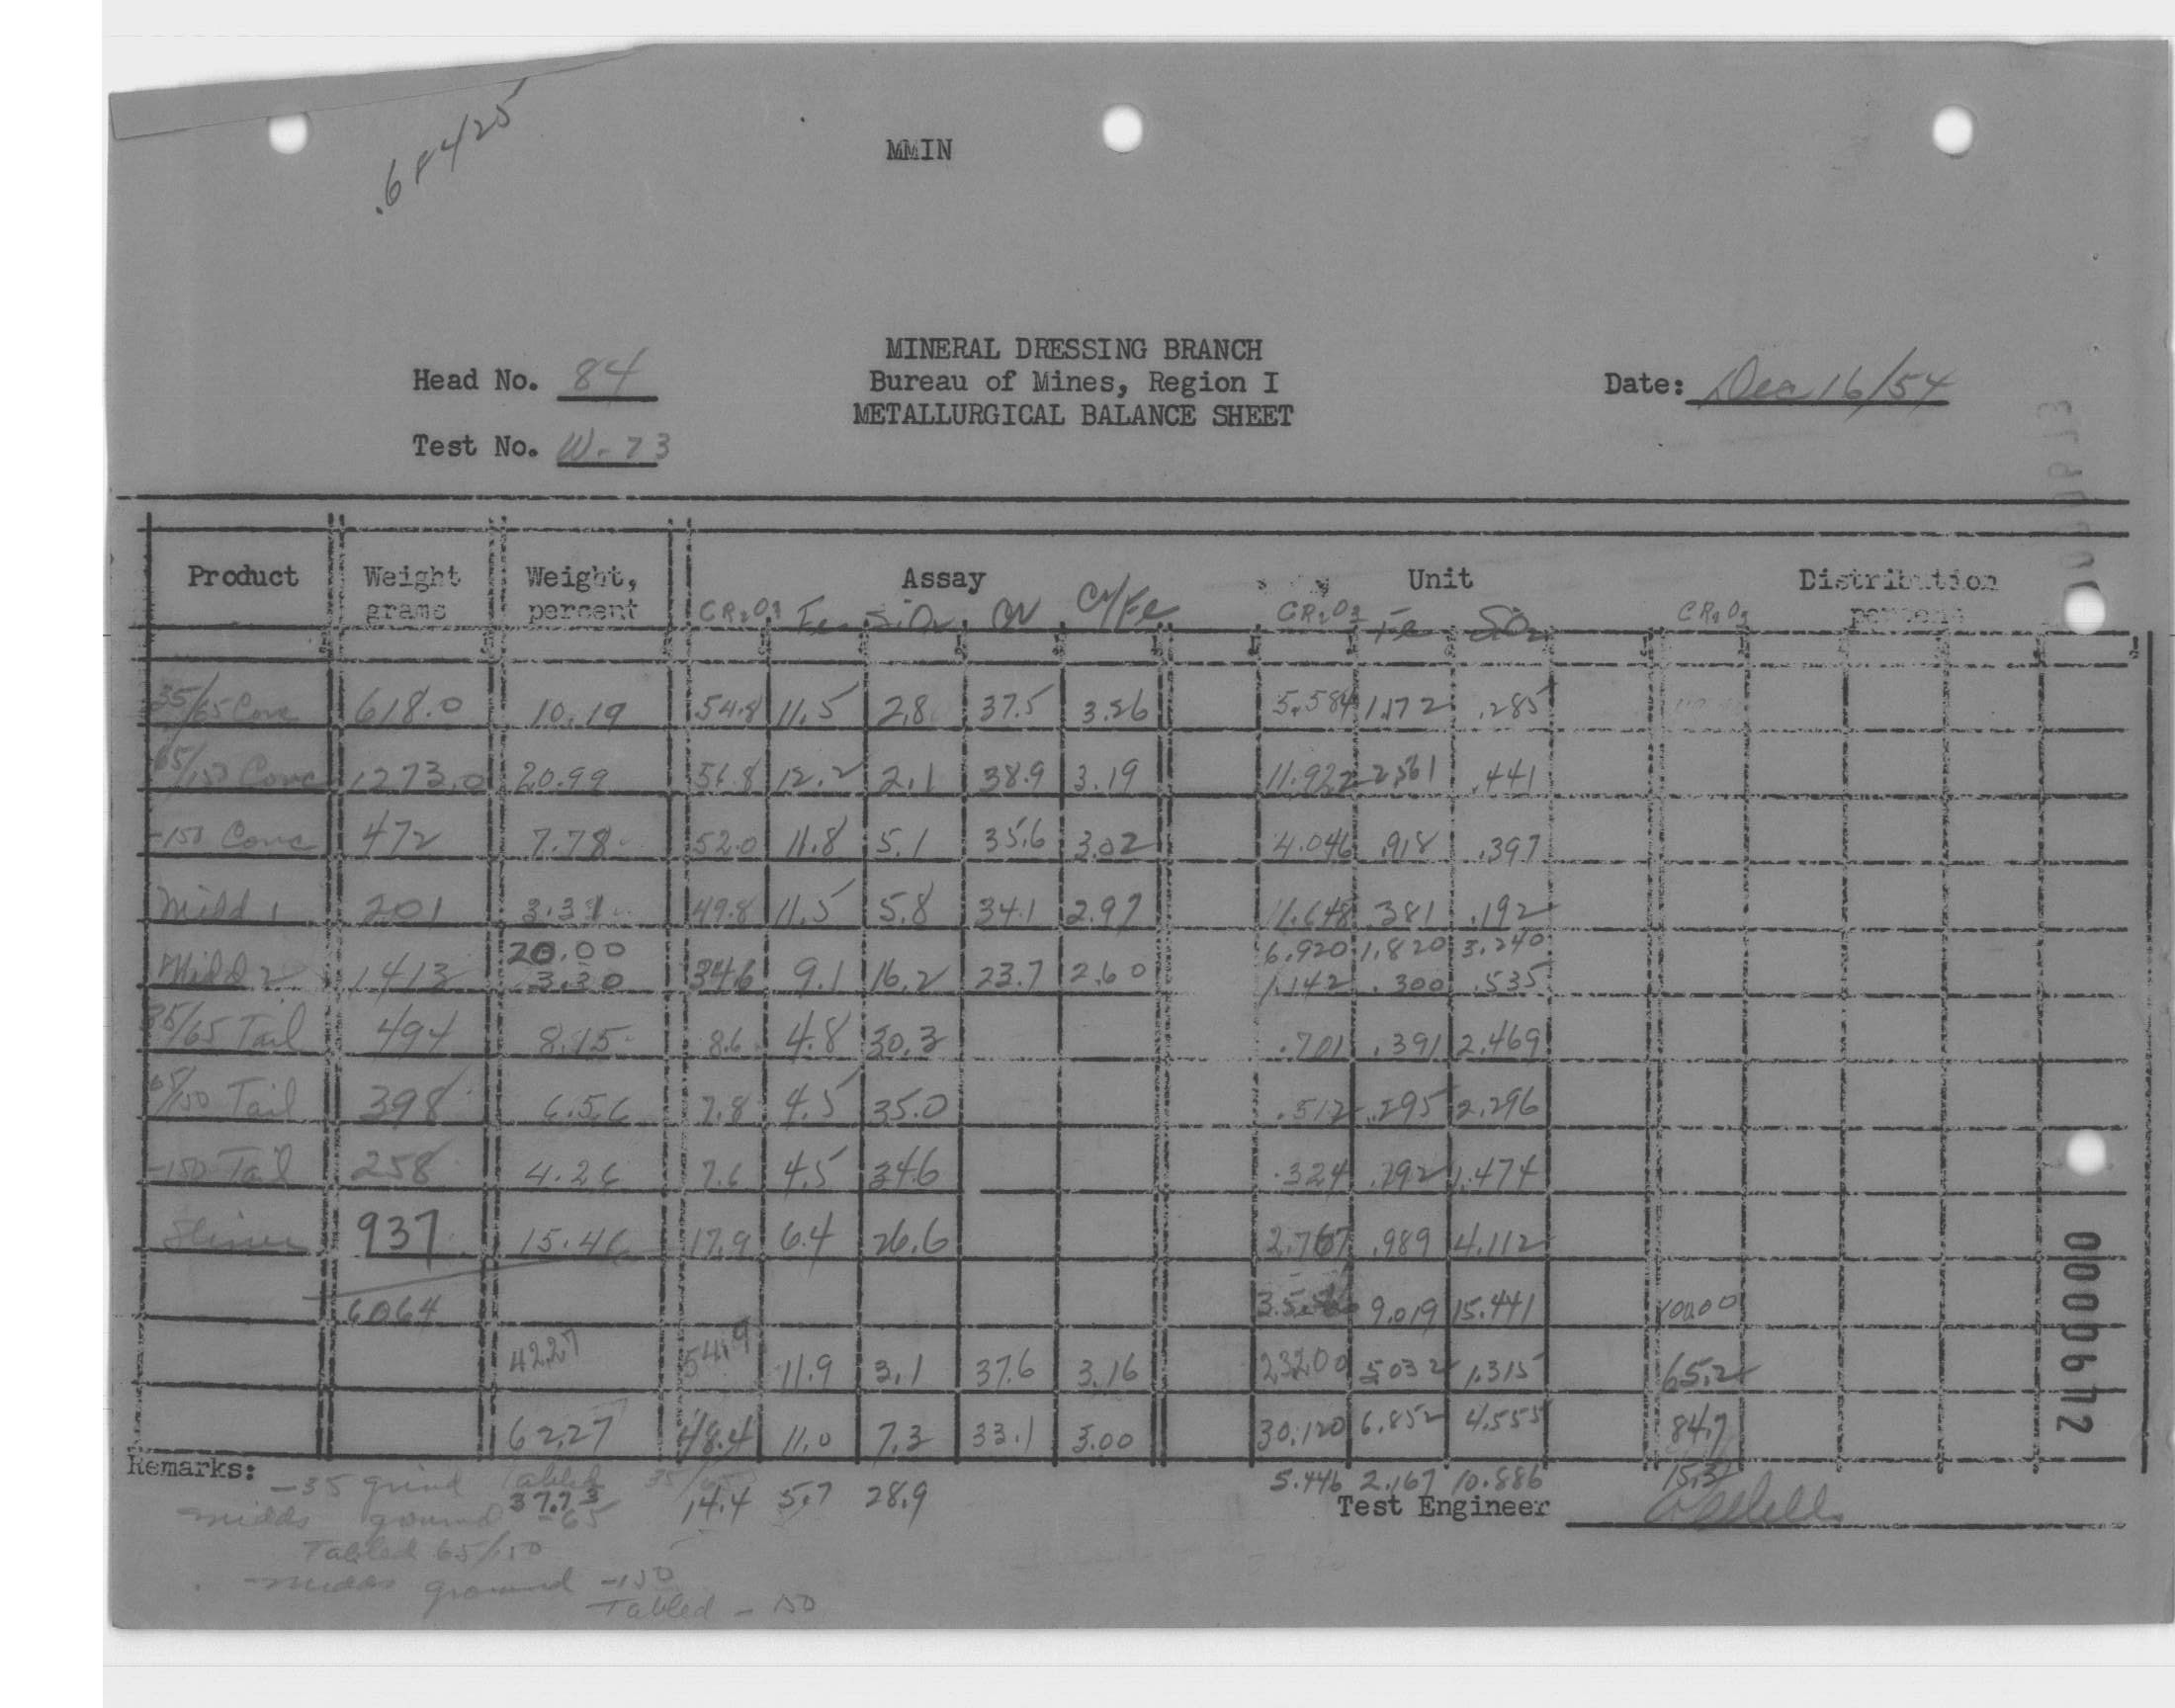 .684425
MMIN
MINERAL DRESSING BRANCH
Head No. 84 Bureau of Mines, Region I Date: Dec 16/54
METALLURGICAL BALANCE SHEET
Test No. W-73
Product Weight grams Weight, percent Assay Unit Distribution percent
CR2O3 Fe SiO2 Cr Cr/Fe CR2O3 Fe SiO2 CR2O3
35/65 Conc 618.0 10.19 54.8 11.5 2.8 37.5 3.26 5.584 1.172 .285
65/150 Conc 1273.0 20.99 56.8 12.2 2.1 38.9 3.19 11.922 2.561 .441
-150 Conc 472 7.78 52.0 11.8 5.1 35.6 3.02 4.046 .918 .397
Midd 1 201 3.31 49.8 11.5 5.8 34.1 2.97 1.648 .381 .192
20.00 6.920 1.820 3.240
Midd 2 1413 3.30 34.6 9.1 16.2 23.7 2.60 1.142 .300 .535
35/65 Tail 494 8.15 8.6 4.8 30.3 .701 .391 2.469
65/150 Tail 398 6.56 7.8 4.5 35.0 .512 .295 2.296
-150 Tail 258 4.26 7.6 4.5 34.6 .324 .192 1.474
Slimes 937 15.46 17.9 6.4 26.6 2.767 .989 4.112
6064 9.019 15.441 100.00
42.27 54.9 11.9 3.1 37.6 3.16 23.200 5.032 1.315 65.2
62.27 48.4 11.0 7.3 33.1 3.00 30.120 6.852 4.555 84.7
Remarks: -35 grind Tabled 35/65
37.73 14.4 5.7 28.9 5.446 2.167 10.886 15.3
midds ground -65
Test Engineer
Tabled 65/150
-midds ground -150
Tabled - 150
000672